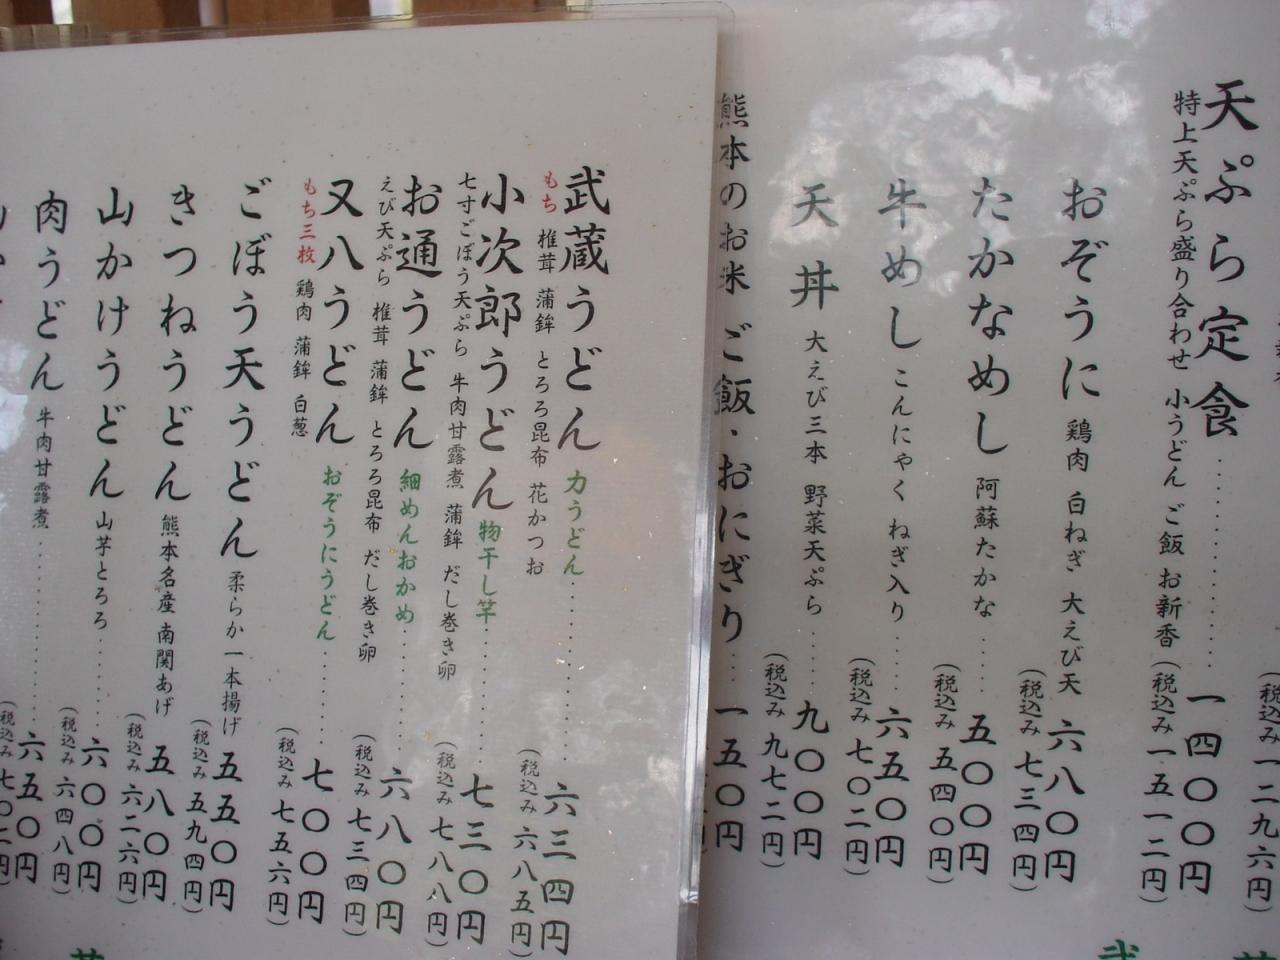 天ぷら定食
特上天ぷら盛り合わせ 小うどん ご飯 お新香
一四〇〇円
(税込み 一五一二円)
おぞうに 鶏肉 白ねぎ 大えび天
六八〇円
(税込み 七三四円)
たかなめし 阿蘇たかな
五〇〇円
(税込み 五四〇円)
牛めし こんにゃく ねぎ入り
六五〇円
(税込み 七〇二円)
天丼 大えび三本 野菜天ぷら
九〇〇円
(税込み 九七二円)
熊本のお米 ご飯・おにぎり
一五〇円
武蔵うどん 力うどん
もち 椎茸 蒲鉾 とろろ昆布 花かつお
六三四円
(税込み 六八五円)
小次郎うどん 物干し竿
七寸ごぼう天ぷら 牛肉甘露煮 蒲鉾 だし巻き卵
七三〇円
(税込み 七八八円)
お通うどん 細めんおかめ
えび天ぷら 椎茸 蒲鉾 とろろ昆布 だし巻き卵
六八〇円
(税込み 七三四円)
又八うどん おぞうにうどん
もち三枚 鶏肉 蒲鉾 白葱
七〇〇円
(税込み 七五六円)
ごぼう天うどん 柔らか一本揚げ
五五〇円
(税込み 五九四円)
きつねうどん 熊本名産 南関あげ
五八〇円
(税込み 六二六円)
山かけうどん 山芋とろろ
六〇〇円
(税込み 六四八円)
肉うどん 牛肉甘露煮
六五〇円
(税込み 七〇二円)
(税込み 一二九六円)